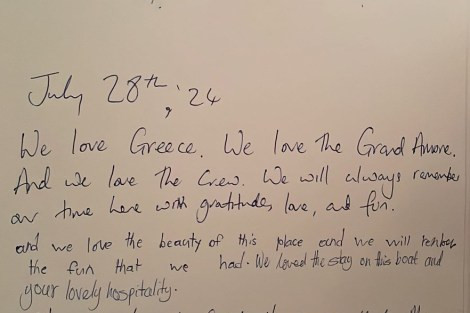 July 28th, '24
We love Greece. We love the Grand Amore.
And we love the Crew. We will always remember
our time here with gratitudes, love, and fun.
and we love the beauty of this place and we will
the fun that we had. We loved the stay on this boat and
your lovely hospitality.